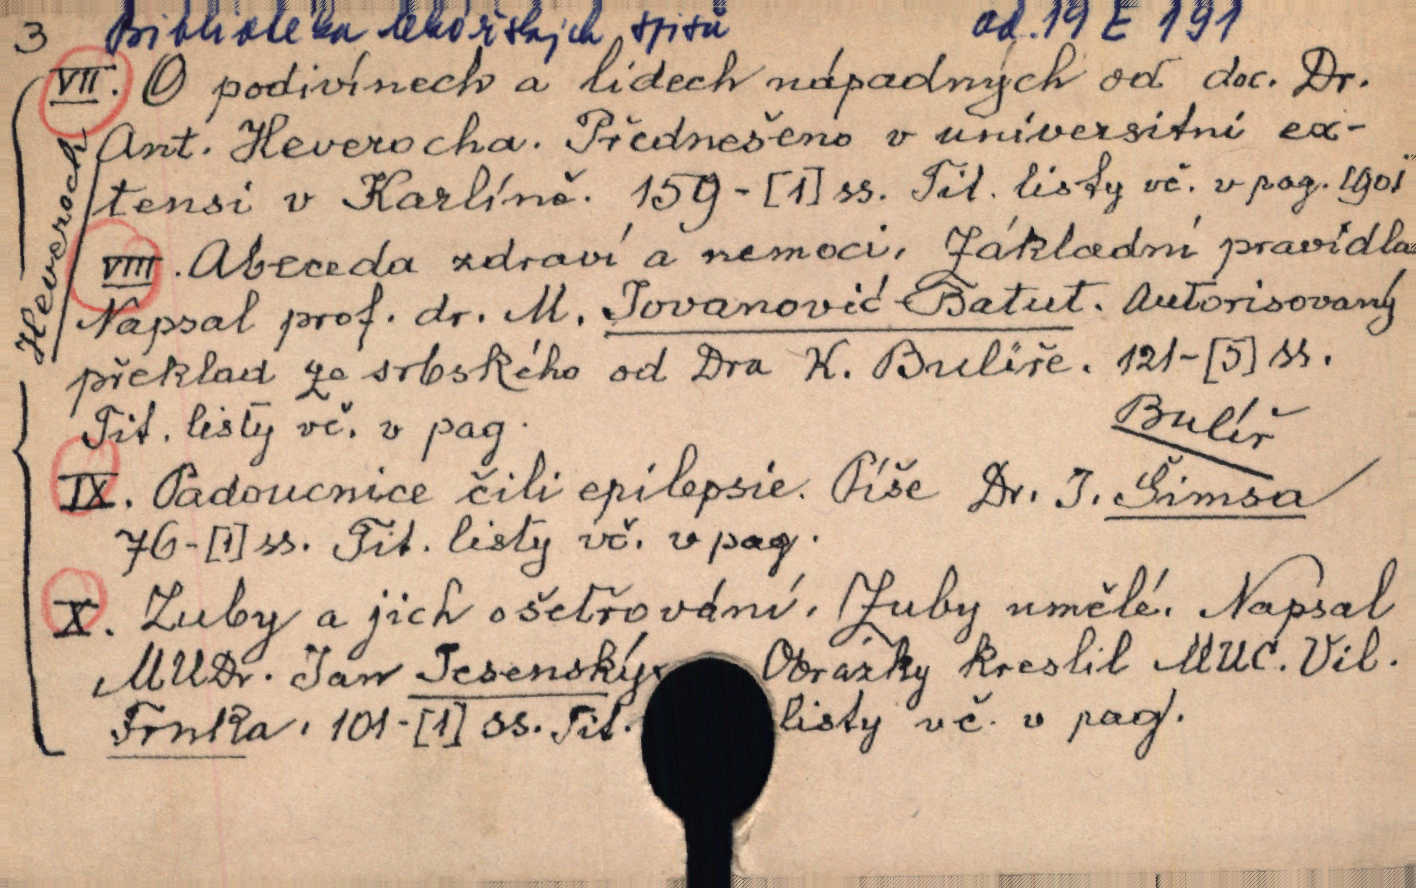 3 Bibliotéka lékařských spisů od. 19 E 191
VII. O podivínech a lidech nápadných od doc. Dr.
Ant. Heverocha. Předneseno v universitní ex-
tensi v Karlíně. 159-[1] ss. Tit. listy vč. v pag. 1901
Heveroch
VIII. Abeceda zdraví a nemoci. Základní pravidla
Napsal prof. dr. M. Jovanović-Batut. Autorisovaný
překlad ze srbského od Dra K. Bulíře. 121-[5] ss.
Tit. listy vč. v pag.
Bulíř
IX. Padoucnice čili epilepsie. Píše Dr. J. Šimsa
76-[1] ss. Tit. listy vč. v pag.
X. Zuby a jich ošetřování. Zuby umělé. Napsal
MUDr. Jan Jesenský. Obrázky kreslil MUC. Vil.
Trnka. 101-[1] ss. Tit. listy vč. v pag.